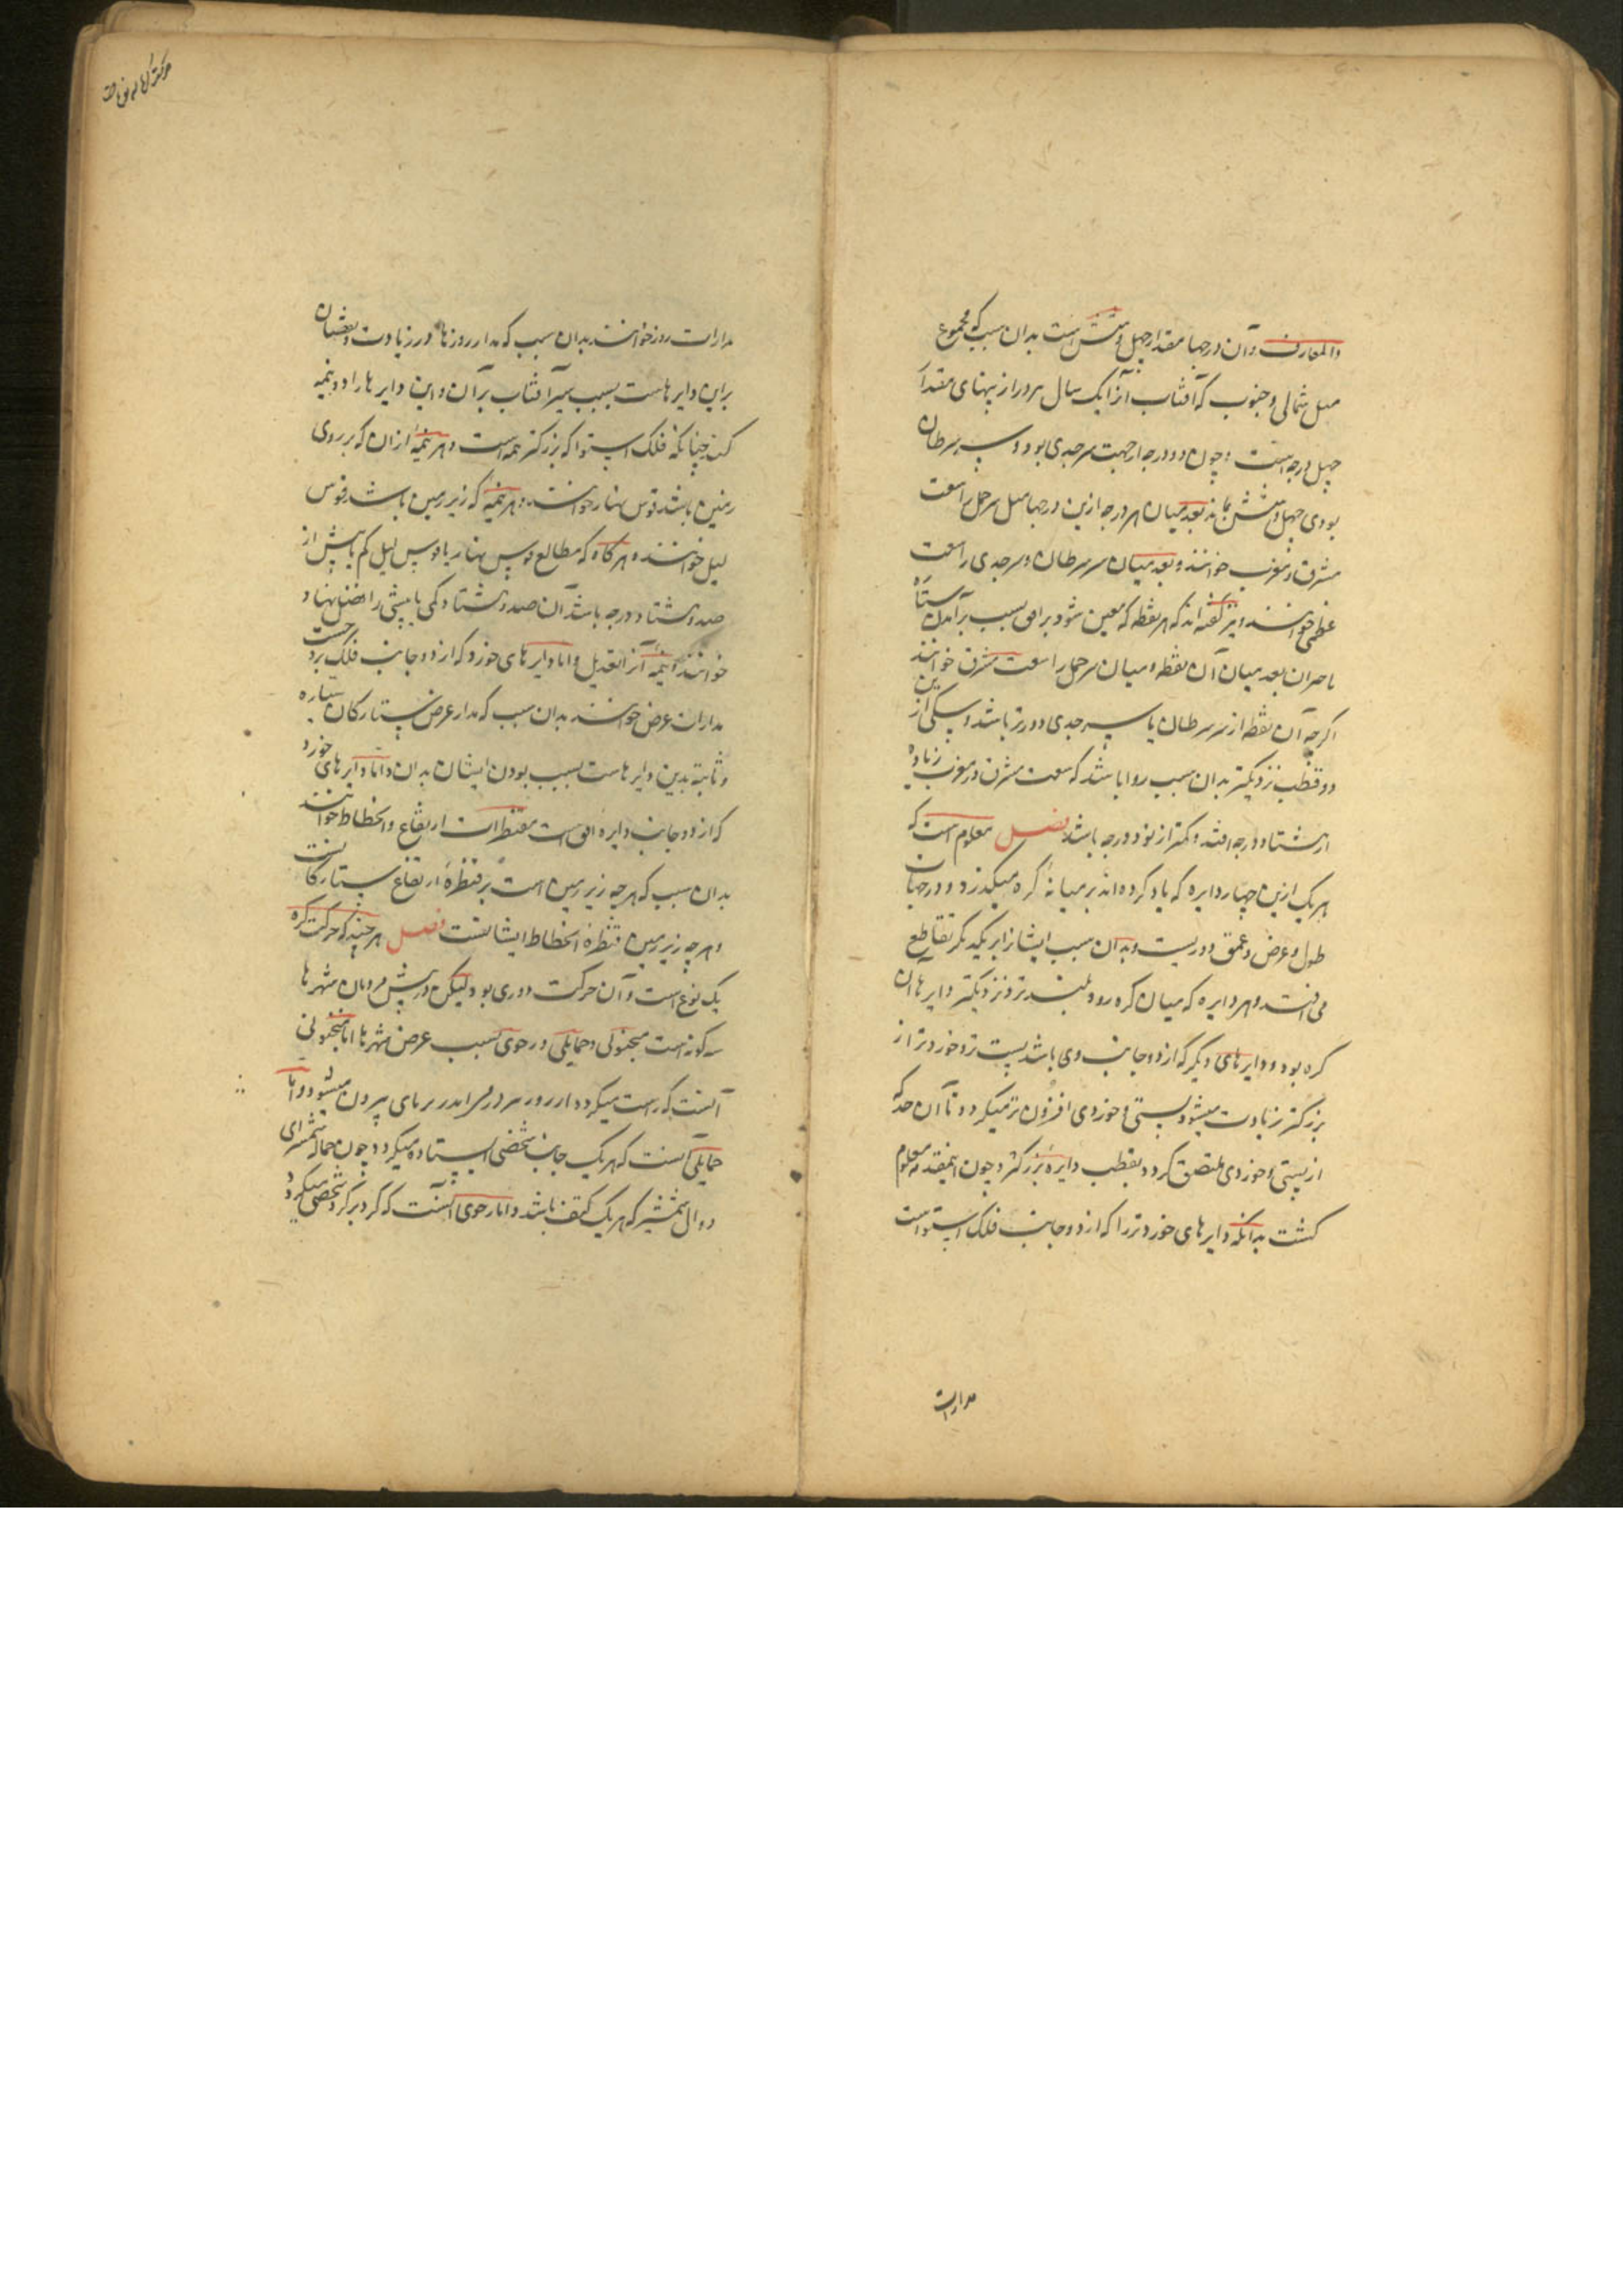 والمعارف و آن درجها مقدار چهل و شش است بدان سبب که مجموع
میل شمالی و جنوب که آفتاب آنرا یک سال برود از پهنای مقدار
چهل درجه است و چون دو درجه از جهت سر جدی بود و سر سرطان
بودی چهل و شش بماند بعد میان هر درجه ازین درجها میل سر حمل را سعت
مشرق و مغرب خوانند و بعد میان سر سرطان و سر جدی را سعت
عظمی خوانند و نیز گفته‌اند که هر نقطه که معین شود بر افق بسبب برآمدن ستاره
یا جز آن بعد میان آن نقطه و میان سر حمل را سعت مشرق خوانند
اگرچه آن نقطه از سر سرطان یا سر جدی دورتر باشد و بیکی از این
دو قطب نزدیکتر بدان سبب روا باشد که سعت مشرق و مغرب زیاده
از هشتاد درجه افتد و کمتر از نود درجه باشد فصل معلوم است که
هر یک ازین چهار دایره که یاد کرده‌اند بر میانهٔ کره میگذرد و در جهان
طول و عرض و عمق دوریست و بدان سبب ایشانرا بر یکدیگر تقاطع
می افتد و هر دایره که میان کره رود بلند تر و نزدیکتر دایرها آن
کره بود و دایرهای دیگر که از دو جانب وی باشد پست تر و خوردتر از
بزرگتر زیادت میشود و پستی و خوردی افزون تر میگردد تا آن حد که
از پستی و خوردی ملتصق گردد بقطب دایره بزرگتر و چون اینقدر معلوم
گشت بدانکه دایرهای خوردتر را که از دو جانب فلک استواست
مدارات
مدارات روز خوانند بدان سبب که مدار روزها در زیادت و نقصان
براین دایرهاست بسبب سیر آفتاب بر آن و این دایرها را دو نیمه
کند چنانکه فلک استوا که بزرگتر همه است و هر نیمه از آن که بر روی
زمین باشد قوس نهار خوانند و هر نیمه که زیر زمین باشد قوس
لیل خوانند و هر گاه که مطالع قوس نهار یا قوس لیل کم یا بیش از
صد و هشتاد درجه باشد آن صد و هشتاد و کمی یا بیشی را فضل نهار
خوانند و نیمه آنرا تعدیل و اما دایرهای خورد که از دو جانب فلک بروجست
مدارات عرض خوانند بدان سبب که مدار عرض ستارگان سیاره
و ثابته بدین دایرهاست بسبب بودن ایشان بدان و اما دایرهای خورد
که از دو جانب دایره افق است مقنطرات ارتفاع و انحطاط خوانند
بدان سبب که هر چه زیر زمین است بر قنطرهٔ ارتفاع ستارگانست
و هر چه زیر زمین قنطرهٔ انحطاط ایشانست فصل هر چند که حرکت کره
یک نوع است و آن حرکت دوری بود لیکن در پیش مردمان شهرها
سه گونه است منجنونی و حمایلی و رحوی بسبب عرض شهرها اما منجنونی
آنست که راست میگردد از بهر پای بیرون میشود و اما
حمایلی آنست که بر یک جانب شخصی ایستاده میگردد چون حماله شمشیرای
دوال شمشیر که بر یک کتف باشد و اما رحوی آنست که گرد بر گرد شخصی میگردد